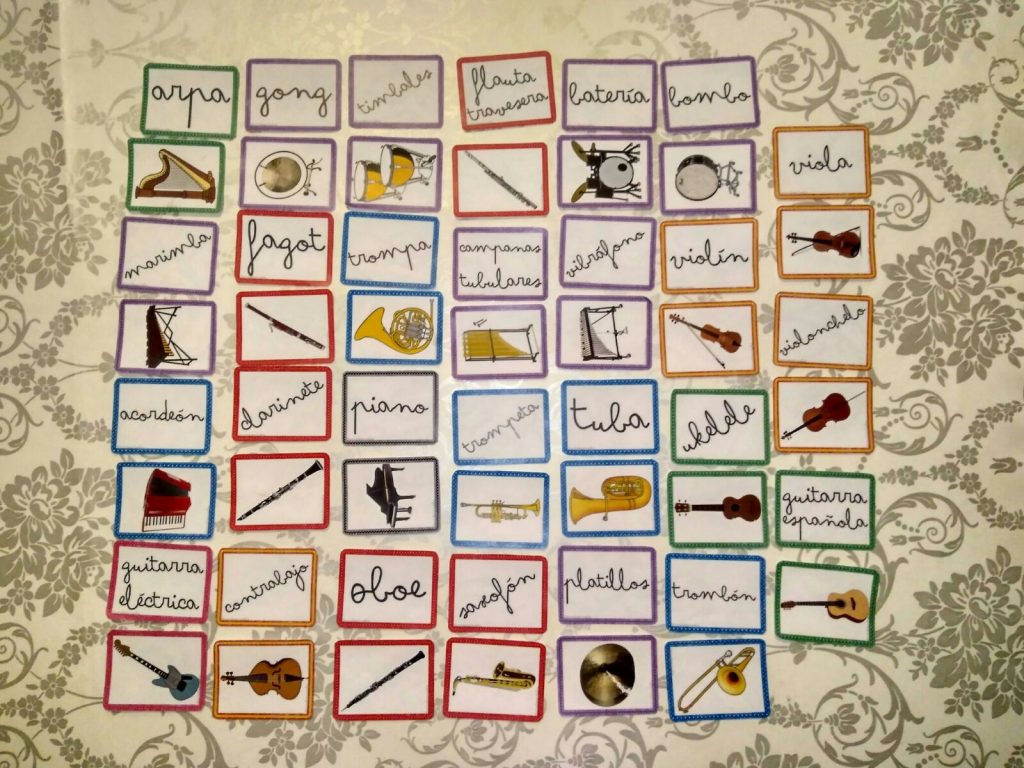 arpa
gong
timbales
flauta
travesera
batería
bombo
viola
marimba
fagot
trompa
campanas
tubulares
vibráfono
violín
violonchelo
acordeón
clarinete
piano
trompeta
tuba
ukelele
guitarra
española
guitarra
eléctrica
contrabajo
oboe
saxofón
platillos
trombón